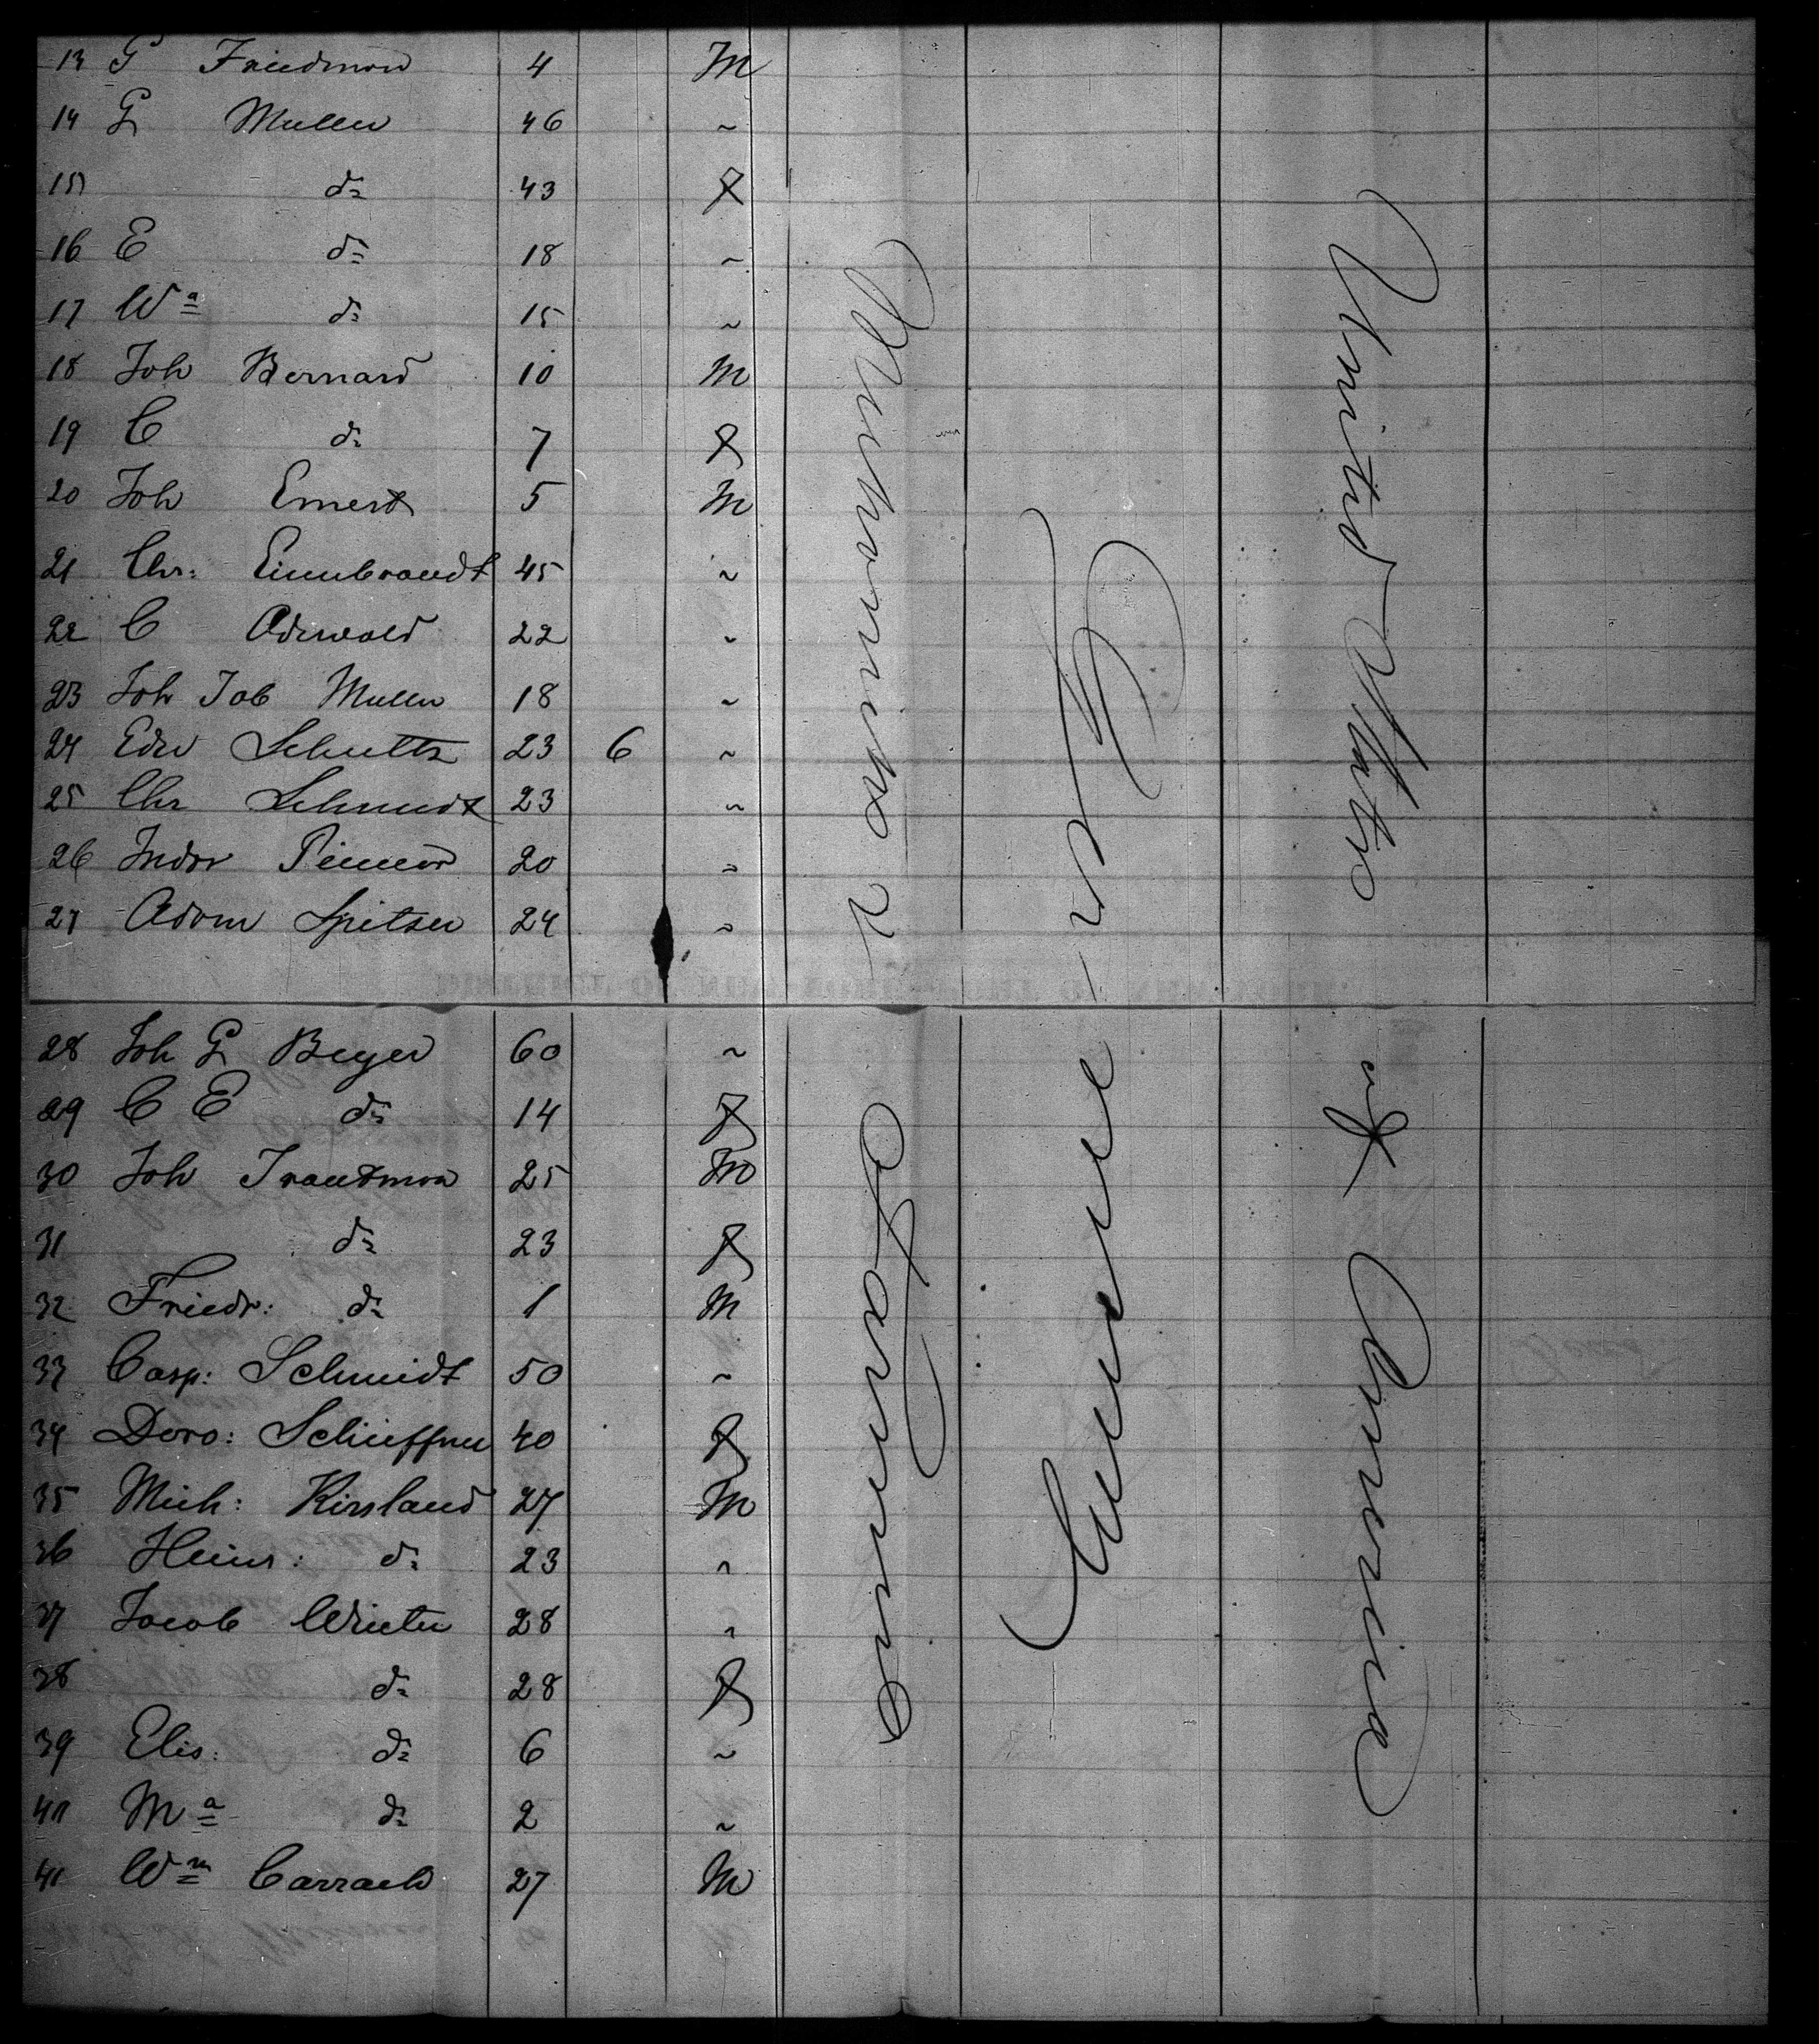 13 G Friedmon 4 M
14 G Muller 46 ~
15 do 43 F
16 E do 18 ~
17 Wa do 15 ~
18 Joh Bernard 10 M
19 C do 7 F
20 Joh Ernest 5 M
21 Chr: Einnbrandt 45 ~
22 C Oderwald 22 ~
23 Joh Job Muller 18 ~
24 Edw Schultz 23 6 ~
25 Chr Schmidt 23 ~
26 20 ~
27 Adam Spitzer 24 ~
28 Joh G Beyer 60 ~
29 C E do 14 F
30 Joh Trautman 25 M
31 do 23 F
32 Friedr: do 1 M
33 Casp: Schmidt 50 ~
34 Doro: Schieffner 40 F
35 Mich: Kirsland 27 M
36 Heinr: do 23 ~
37 Jacob Winter 28 ~
38 do 28 F
39 Elis: do 6 ~
40 Ma do 2 ~
41 Wm Carrach 27 M
Merchanics & Farmers
Germany
United States of America